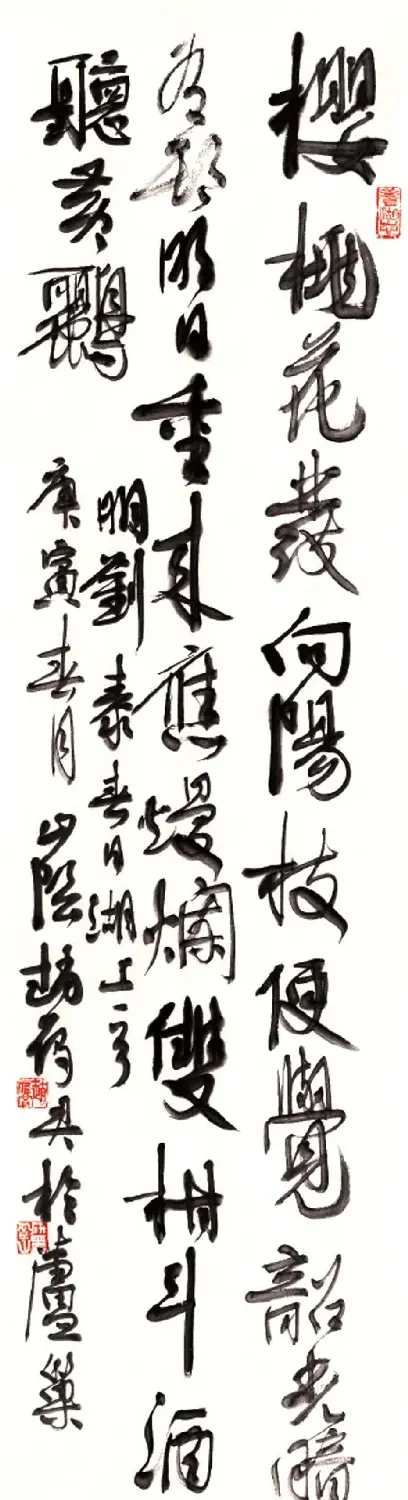 櫻桃花發向陽枝便覺韶光暗
有期明日重來應熳爛雙柑斗酒
聽黃鸝
明劉泰春日湖上一首
庚寅春月山陰趙於廬巢